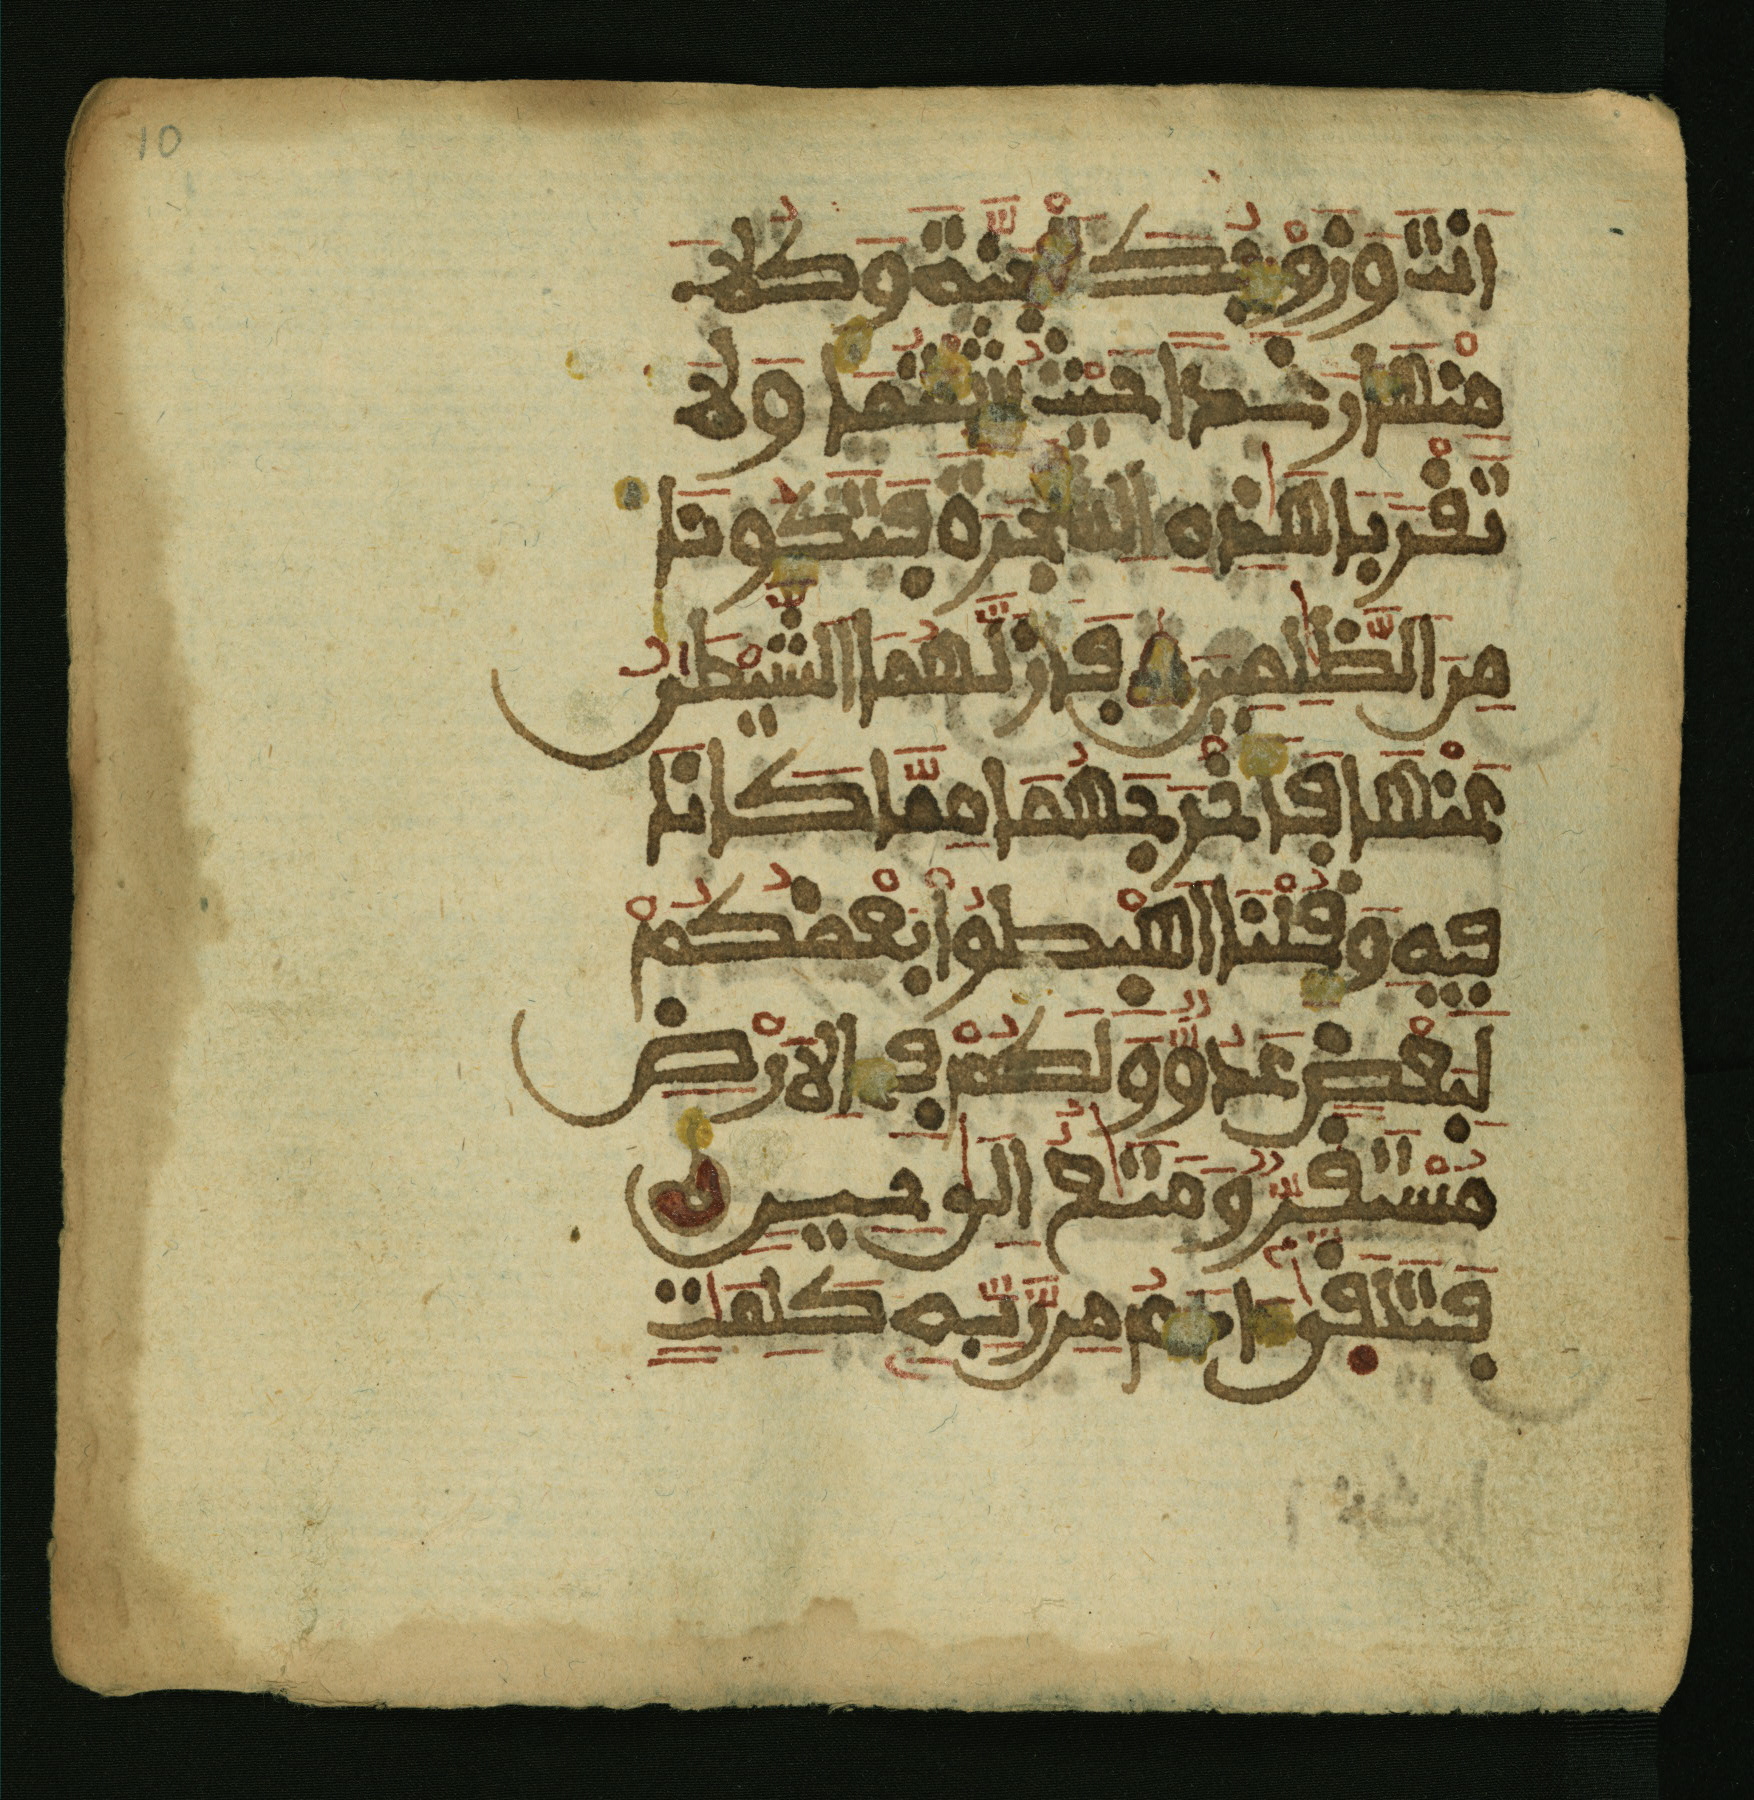 10
اَنتَ وَزَوْجُكَ اَ۬لْجَنَّةَ وَكُلَا
مِنْهَا رَغَداً حَيْثُ شِئْتُمَا وَلَا
تَقْرَبَا هَٰذِهِ اِ۬لشَّجَرَةَ فَتَكُونَا
مِنَ اَ۬لظَّٰلِمِينَ فَأَزَلَّهُمَا اَ۬لشَّيْطَٰنُ
عَنْهَا فَأَخْرَجَهُمَا مِمَّا كَانَا
فِيهِ وَقُلْنَا اَ۪هْبِطُواْ بَعْضُكُمْ
لِبَعْضٍ عَدُوّٞ وَلَكُمْ فِے اِ۬لَارْضِ
مُسْتَقَرّٞ وَمَتَٰعٌ اِلَىٰ حِينٖ
فَتَلَقّ۪ىٰٓ ءَادَمُ مِن رَّبِّهِۦ كَلِمَٰتٖ